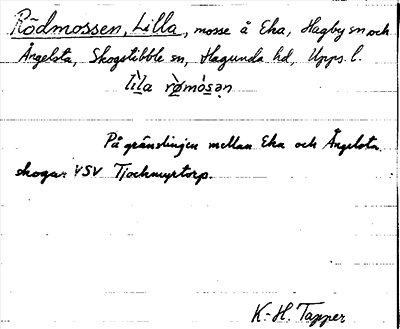 Rödmossen, Lilla, mosse å Eka, Hagby sn och
Ängelsta, Skogstibble sn, Hagunda hd, Upps. l.
På gränslinjen mellan Eka och Ängelsta
skogar VSV Tjockmyrtorp.
K.-H. Tapper